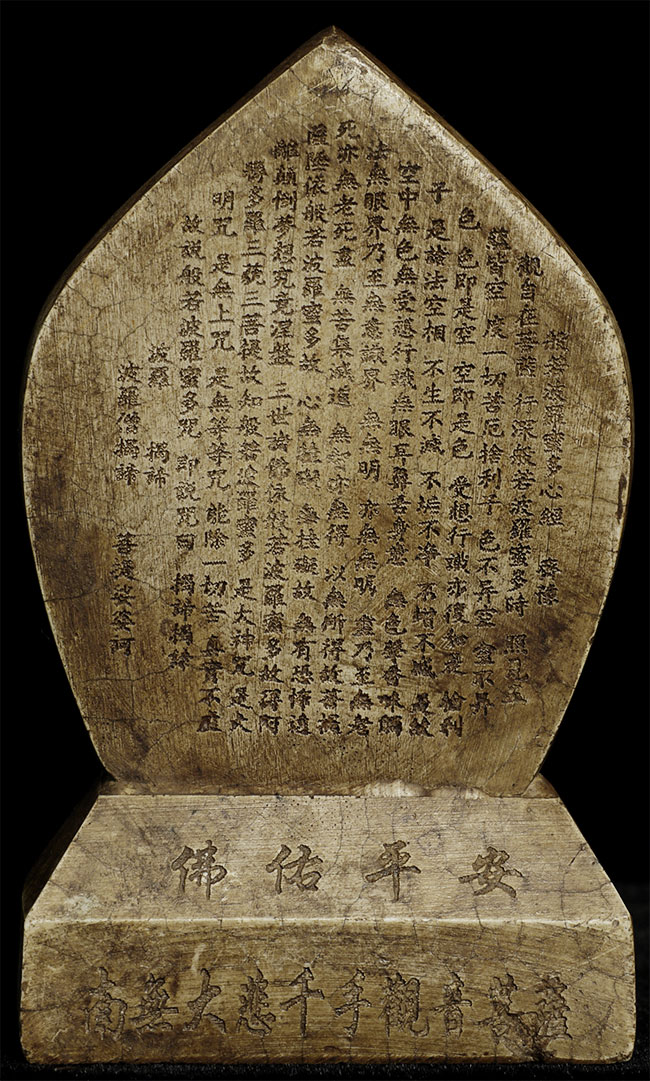 般若波羅蜜多心經
觀自在菩薩 行深般若波羅蜜多時 照見五
蘊皆空 度一切苦厄 捨利子 色不异空 空不异
色 色即是空 空即是色 受想行識亦復如是 捨利
子 是諸法空相 不生不滅 不垢不净 不增不減 是故
空中無色無受想行識無眼耳鼻舌身意 無色聲香味觸
法無眼界乃至無意識界 無無明 亦無無明 盡乃至無老
死亦無老死盡 無苦集滅道 無智亦無得 以無所得故菩提
薩埵依般若波羅蜜多故 心無桂礙 無桂礙故 無有恐怖遠
離顛倒夢想究竟涅盤 三世諸佛依般若波羅蜜多故得阿
耨多羅三藐三菩提故知般若波羅蜜多 是大神咒 是大
明咒 是無上咒 是無等等咒 能除一切苦 真實不虛
故説般若波羅蜜多咒 即説咒曰 揭諦揭諦
波羅 揭諦
波羅僧揭諦 菩提娑婆阿
佛佑平安
南無大悲千手觀音菩薩